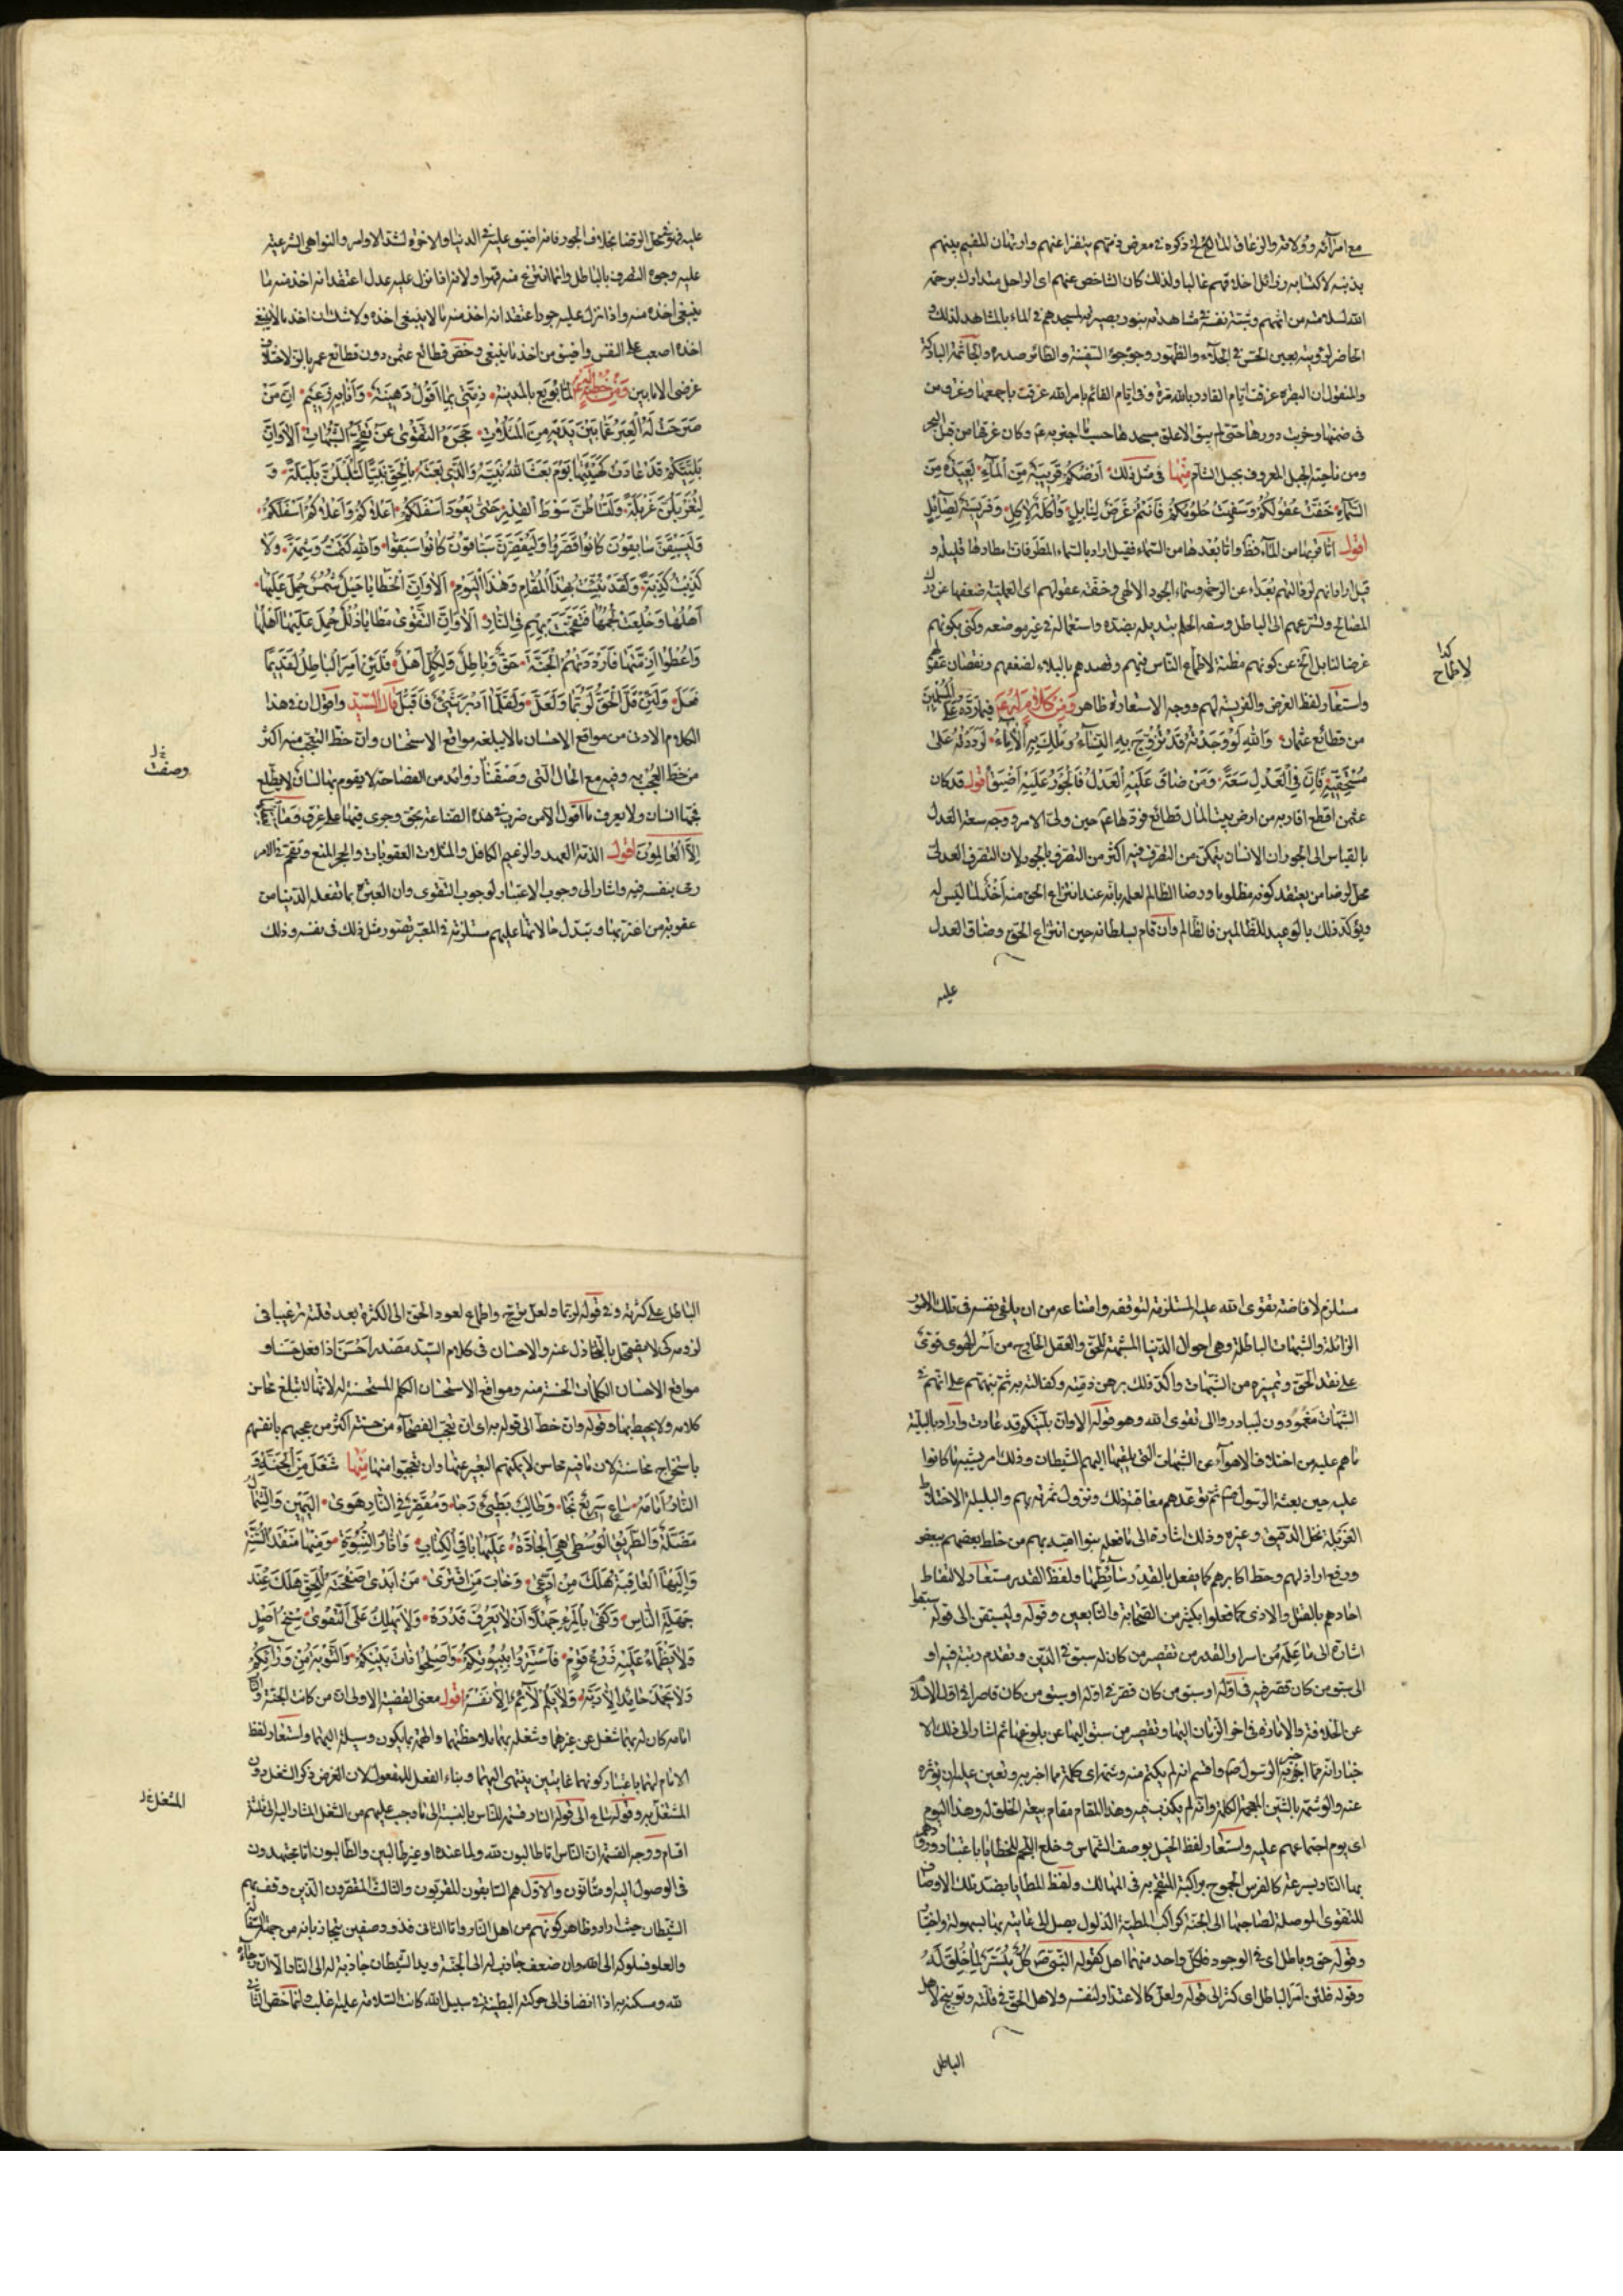 مع امرائه وولاته والزعاق المالح لخ ذكره فى معرض ذمهم ينفر اعنهم وارتهان المقيم بينهم
بذنبه لاكتسابه رذائل اخلاقهم غالبا ولذلك كان الشاخص عنهم اى الراحل متداركا برحمة
الله لسلامته من اثمهم ونسبة نفسه فى مشاهدته بنور بصيرته لمسجدهم فى الماء بالمشاهد لذلك
الحاضر لرؤيته بعين الحس فى الجلاء والظهور وجؤجؤ السفينة والطائر صدره والجاثمة الباركة
والمنقول ان البصرة غرقت ايام القادر بالله مرة وفى ايام القائم بامر الله غرقت باجمعها وغرق من
فى ضمنها وخربت دورها حتى لم يبق الا علو مسجدها حسب ما اخبر به ع م وكان غرقها من قبل البحر
ومن ناحية الجبل المعروف بجبل السنام منها فى مثل ذلك ارضكم قريبة من الماء بعيدة من
السماء خفت عقولكم وسفهت حلومكم فانتم غرض لنابل واكلة لاكل وفريسة لصايل
اقول اما قربها من الماء فظ واما بعدها من السماء فقيل اراد بالسماء المطر فان امطارها قليلة و
قيل اراد انهم لرذالتهم بعداء عن الرحمة وسماء الجود الالهى وخفة عقولهم اى العملية ضعفها عن درك
المصالح وتسرعهم الى الباطل وسفه الحلم تبديله بضده واستعماله فى غير موضعه وكنى بكونهم
غرضا لنابل الخ عن كونهم مظنة لاطماع الناس فيهم وقصدهم بالبلاء لضعفهم ونقصان عقولهم
كذا
لاطماح
واستعار لفظ الغرض والفريسة لهم ووجه الاستعارة ظاهر ومن كلام له ع م فيما رده على المسلمين
من قطائع عثمان والله لو وجدته قد تزوج به النساء وملك به الاماء لرددته على
مستحقيه فان فى العدل سعة ومن ضاق عليه العدل فالجور عليه اضيق اقول قد كان
عثمن اقطع اقاربه من ارض بيت المال قطائع فردها ع م حين ولى الامر ووجه سعة العدل
بالقياس الى الجور ان الانسان يتمكن من التصرف فيه اكثر من التصرف بالجور لان التصرف العدلى
محل لرضا من يعتقد كونه مظلوما ورضا الظالم لعلمه بانه عند انتزاع الحق منه اخذ لما ليس له
ويؤكد ذلك بالوعيد للظالمين فالظالم وان قام بسلطانه حين انتزاع الحق وضاق العدل
عليه
عليه فهو فى محل الرضا بخلاف الجور فانه اضيق عليه فى الدنيا والاخرة لشدة الاوامر والنواهى الشرعية
عليه وجوه التصرف بالباطل وانما انتزع منه قهرا ولانه اذا نزل عليه عدل اعتقد انه اخذ منه ما
ينبغى اخذه منه واذا نزل عليه جور اعتقد انه اخذ منه ما لا ينبغى اخذه ولا شك ان اخذ ما لا ينبغى
اخذه اصعب على النفس واضيق من اخذ ما ينبغى وخص قطائع عثمن دون قطائع عمر بالرد لاختلاف
غرضى الامامين ومن خطبة له ع م لما بويع بالمدينة ذمتى بما اقول رهينة وانا به زعيم ان من
صرحت له العبر عما بين يديه من المثلات حجزه التقوى عن تقحم الشبهات الا وان
بليتكم قد عادت كهيئتها يوم بعث الله نبيه والذى بعثه بالحق نبيا لتبلبلن بلبلة و
لتغربلن غربلة ولتساطن سوط القدر حتى يعود اسفلكم اعلاكم واعلاكم اسفلكم
وليسبقن سابقون كانوا قصروا وليقصرن سباقون كانوا سبقوا والله ما كتمت وشمة ولا
كذبت كذبة ولقد نبئت بهذا المقام وهذا اليوم الا وان الخطايا خيل شمس حمل عليها
اهلها وخلعت لجمها فتقحمت بهم فى النار الا وان التقوى مطايا ذلل حمل عليها اهلها
واعطوا ازمتها فاوردتهم الجنة حق وباطل ولكل اهل فلئن امر الباطل لقديما
فعل ولئن قل الحق لربما ولعل ولقلما ادبر شىء فاقبل قال السيد واقول ان فى هذا
الكلام الادنى من مواقع الاحسان ما لا يبلغه مواقع الاستحسان وان حظ التعجب منه اكثر
غ ل
وصفت
من حظ العجب به وفيه مع الحال التى وصفنا زوائد من الفصاحة لا يقوم بها لسان لا يطلع
فجها انسان ولا يعرف ما اقول الا من ضرب فى هذه الصناعة بحق وجرى فيها على عرق وما يعقلها
الا العالمون اقول الذمة العهد والزعيم الكافل والمثلات العقوبات والحجز المنع وتقحم فى الامر
رمى بنفسه فيه واشار الى وجوب الاعتبار لوجوب التقوى وان العبرة بما تفعل الدنيا من
عقوبة من اعتز بها وتبدل حالاتها عليهم مستلزمة فى المعتبر تصور مثل ذلك فى نفسه وذلك
مستلزم لافاضة تقوى الله عليه المستلزمة لتوقفه وامتناعه من ان يلقى نفسه فى تلك الامور
الزائلة والشبهات الباطلة وهى احوال الدنيا المشبهة للحق والعقل الخارج من اسر الهوى قوى
على نقد الحق وتميزه من الشبهات واكد ذلك برهن ذمته وكفالته به ثم نبههم على انهم فى
الشبهات مغمورون ليبادروا الى تقوى الله وهو قوله الا وان بليتكم قد عادت واراد بالبلية
ما هم عليه من اختلاف الاهواء عن الشبهات التى يلقيها اليهم الشيطان وذلك امر يشبه ما كانوا
عليه حين بعثة الرسول ص م ثم توعدهم معاقبة ذلك ونزول ثمرته بهم والبلبلة الاختلاط
الغربلة نخل الدقيق وغيره وذلك اشارة الى ما فعله بنوا امية بهم من خلط بعضهم ببعض
ورفع اراذلهم وحط اكابرهم كما يفعل بالقدر سائطها ولفظ القدر مستعار ولالتقاط
احادهم بالقتل والاذى كما فعلوا بكثير من الصحابة والتابعين وقوله وليسبقن الى قوله سبقوا
اشارة الى ما علمه من اسرار القدر من تقصير من كان له سبق فى الدين وتقدم رتبة فيه او
الى سبق من كان قصر فيه فى اوله او سبق من كان قصر فى اوله او سبق من كان قاصرا فى اول الاسلام
عن الخلافة والامارة فى اخر الزمان اليها وتقصير من سبق اليها عن بلوغها ثم اشار الى ذلك الا
خبار انه مما اخبر به الرسول ص م واقسم انه لم يكتم منه وشمة اى كلمة مما اخبر به وتعين عليه ان يؤثره
عنه والوشمة بالشين المعجمة الكلمة وانه لم يكذب فيه وهذا المقام مقام بيعة الخلق له وهذا اليوم
اى يوم اجتماعهم عليه واستعار لفظ الخيل بوصف الشماس وخلع اللجم للخطايا باعتبار ورودهم
بها النار بسرعة كالفرس الجموح براكبه المتقحم به فى المهالك ولفظ المطايا بضد تلك الاوصاف
للتقوى الموصلة لصاحبها الى الجنة كراكب المطية الذلول يصل الى غايته بها بسهولة واختيار
وقوله حق وباطل اى فى الوجود فلكل واحد منهما اهل كقوله النبى ص كل ميسر لما خلق له
وقوله فلئن امر الباطل اى كثر الى قوله ولعل كالاعتذار لنفسه ولاهل الحق فى قلته وتوبيخ لاهل
الباطل
الباطل على كثرته وفى قوله لربما ولعل ترج واطماع لعود الحق الى الكثرة بعد قلته ترغيبا فى
لزومه كى لا يضمحل بالتخاذل عنه والاحسان فى كلام السيد مصدر احسن اذا فعل حسنا و
مواقع الاحسان الكلمات الحسنة منه ومواقع الاستحسان الكلم المستحسنة له لانها لا تبلغ محاسن
كلامه ولا يحيط بها وقوله وان حظ الى قوله به اى ان تعجب الفصحاء من حسنه اكثر من عجبهم بانفسهم
باستخراج محاسنه لان ما فيه محاسن لا يمكنهم التعبير عنها وان تعجبوا منها منها شغل من الجنة و
النار امامه ساع سريع نجا وطالب بطىء رجا ومقصر فى النار هوى اليمين والشمال
مضلة والطريق الوسطى هى الجادة عليها باقى الكتاب واثار النبوة ومنها منفذ السنة
واليها العاقبة هلك من ادعى وخاب من افترى من ابدى صفحته للحق هلك عند
جهلة الناس وكفى بالمرء جهلا ان لا يعرف قدره ولا يهلك على التقوى سنخ اصل
ولا يظمأ عليه زرع قوم فاستتروا ببيوتكم واصلحوا ذات بينكم والتوبة من ورائكم
ولا يحمد حامد الا ربه ولا يلم لائم الا نفسه اقول معنى القضية الاولى ان من كانت الجنة والنار
امامه كان له بهما شغل عن غيرهما وشغله بهما ملاحظتهما والهمة بما يكون وسيلة اليهما واستعار لفظ
الامام لهما باعتبار كونهما غايتين ينتهى اليهما وبناء الفعل للمفعول لان الغرض ذكر الشغل دون
المشغل غ ل
المشتغل به وقوله ساع الى قوله النار قسمة للناس بالنسبة الى ما وجب عليهم من الشغل المشار اليه الى ثلثة
اقسام ووجه القسمة ان الناس اما طالبون لله ولما عنده او غير طالبين والطالبون اما مجتهدون
فى الوصول اليه او متانون والاول هم السابقون المقربون والثالث المقصرون الذين وقف بهم
الشيطان حيث اراد وظاهر كونهم من اهل النار واما الثانى فذو وصفين يتجاذبانه من جهتى السفالة
والعلو فسلوكه الى الله وان ضعف جاذب له الى الجنة ويد الشيطان جاذبة له الى النار الا ان رجاءه
لله وسكنه به اذا انضاف الى حركته البطيئة فى سبيل الله كانت السلامة عليه اغلب وانما خص الثانى